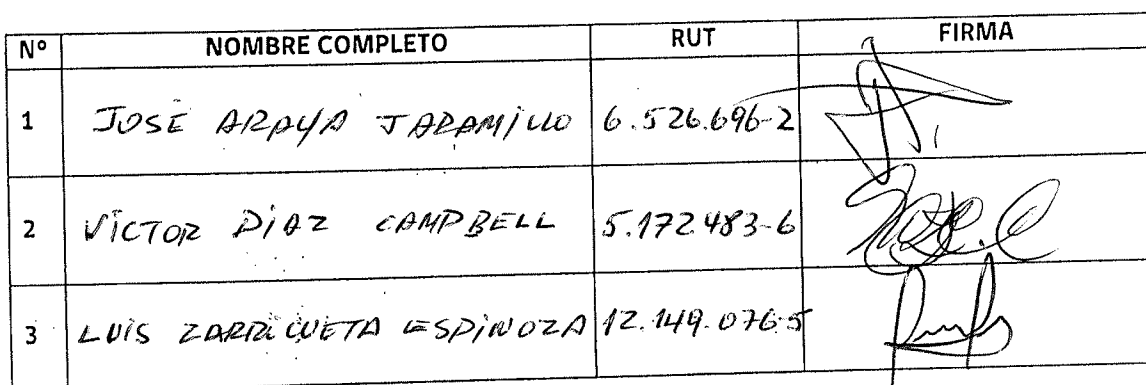 Nº NOMBRE COMPLETO RUT FIRMA
1 JOSE ARAYA JARAMILLO 6.526.696-2
2 VICTOR DIAZ CAMPBELL 5.172.483-6
3 LUIS ZARRICUETA ESPINOZA 12.149.076-5